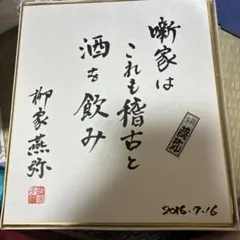 噺家は
これも稽古と
酒を飲み
柳家燕弥
2016.7.16